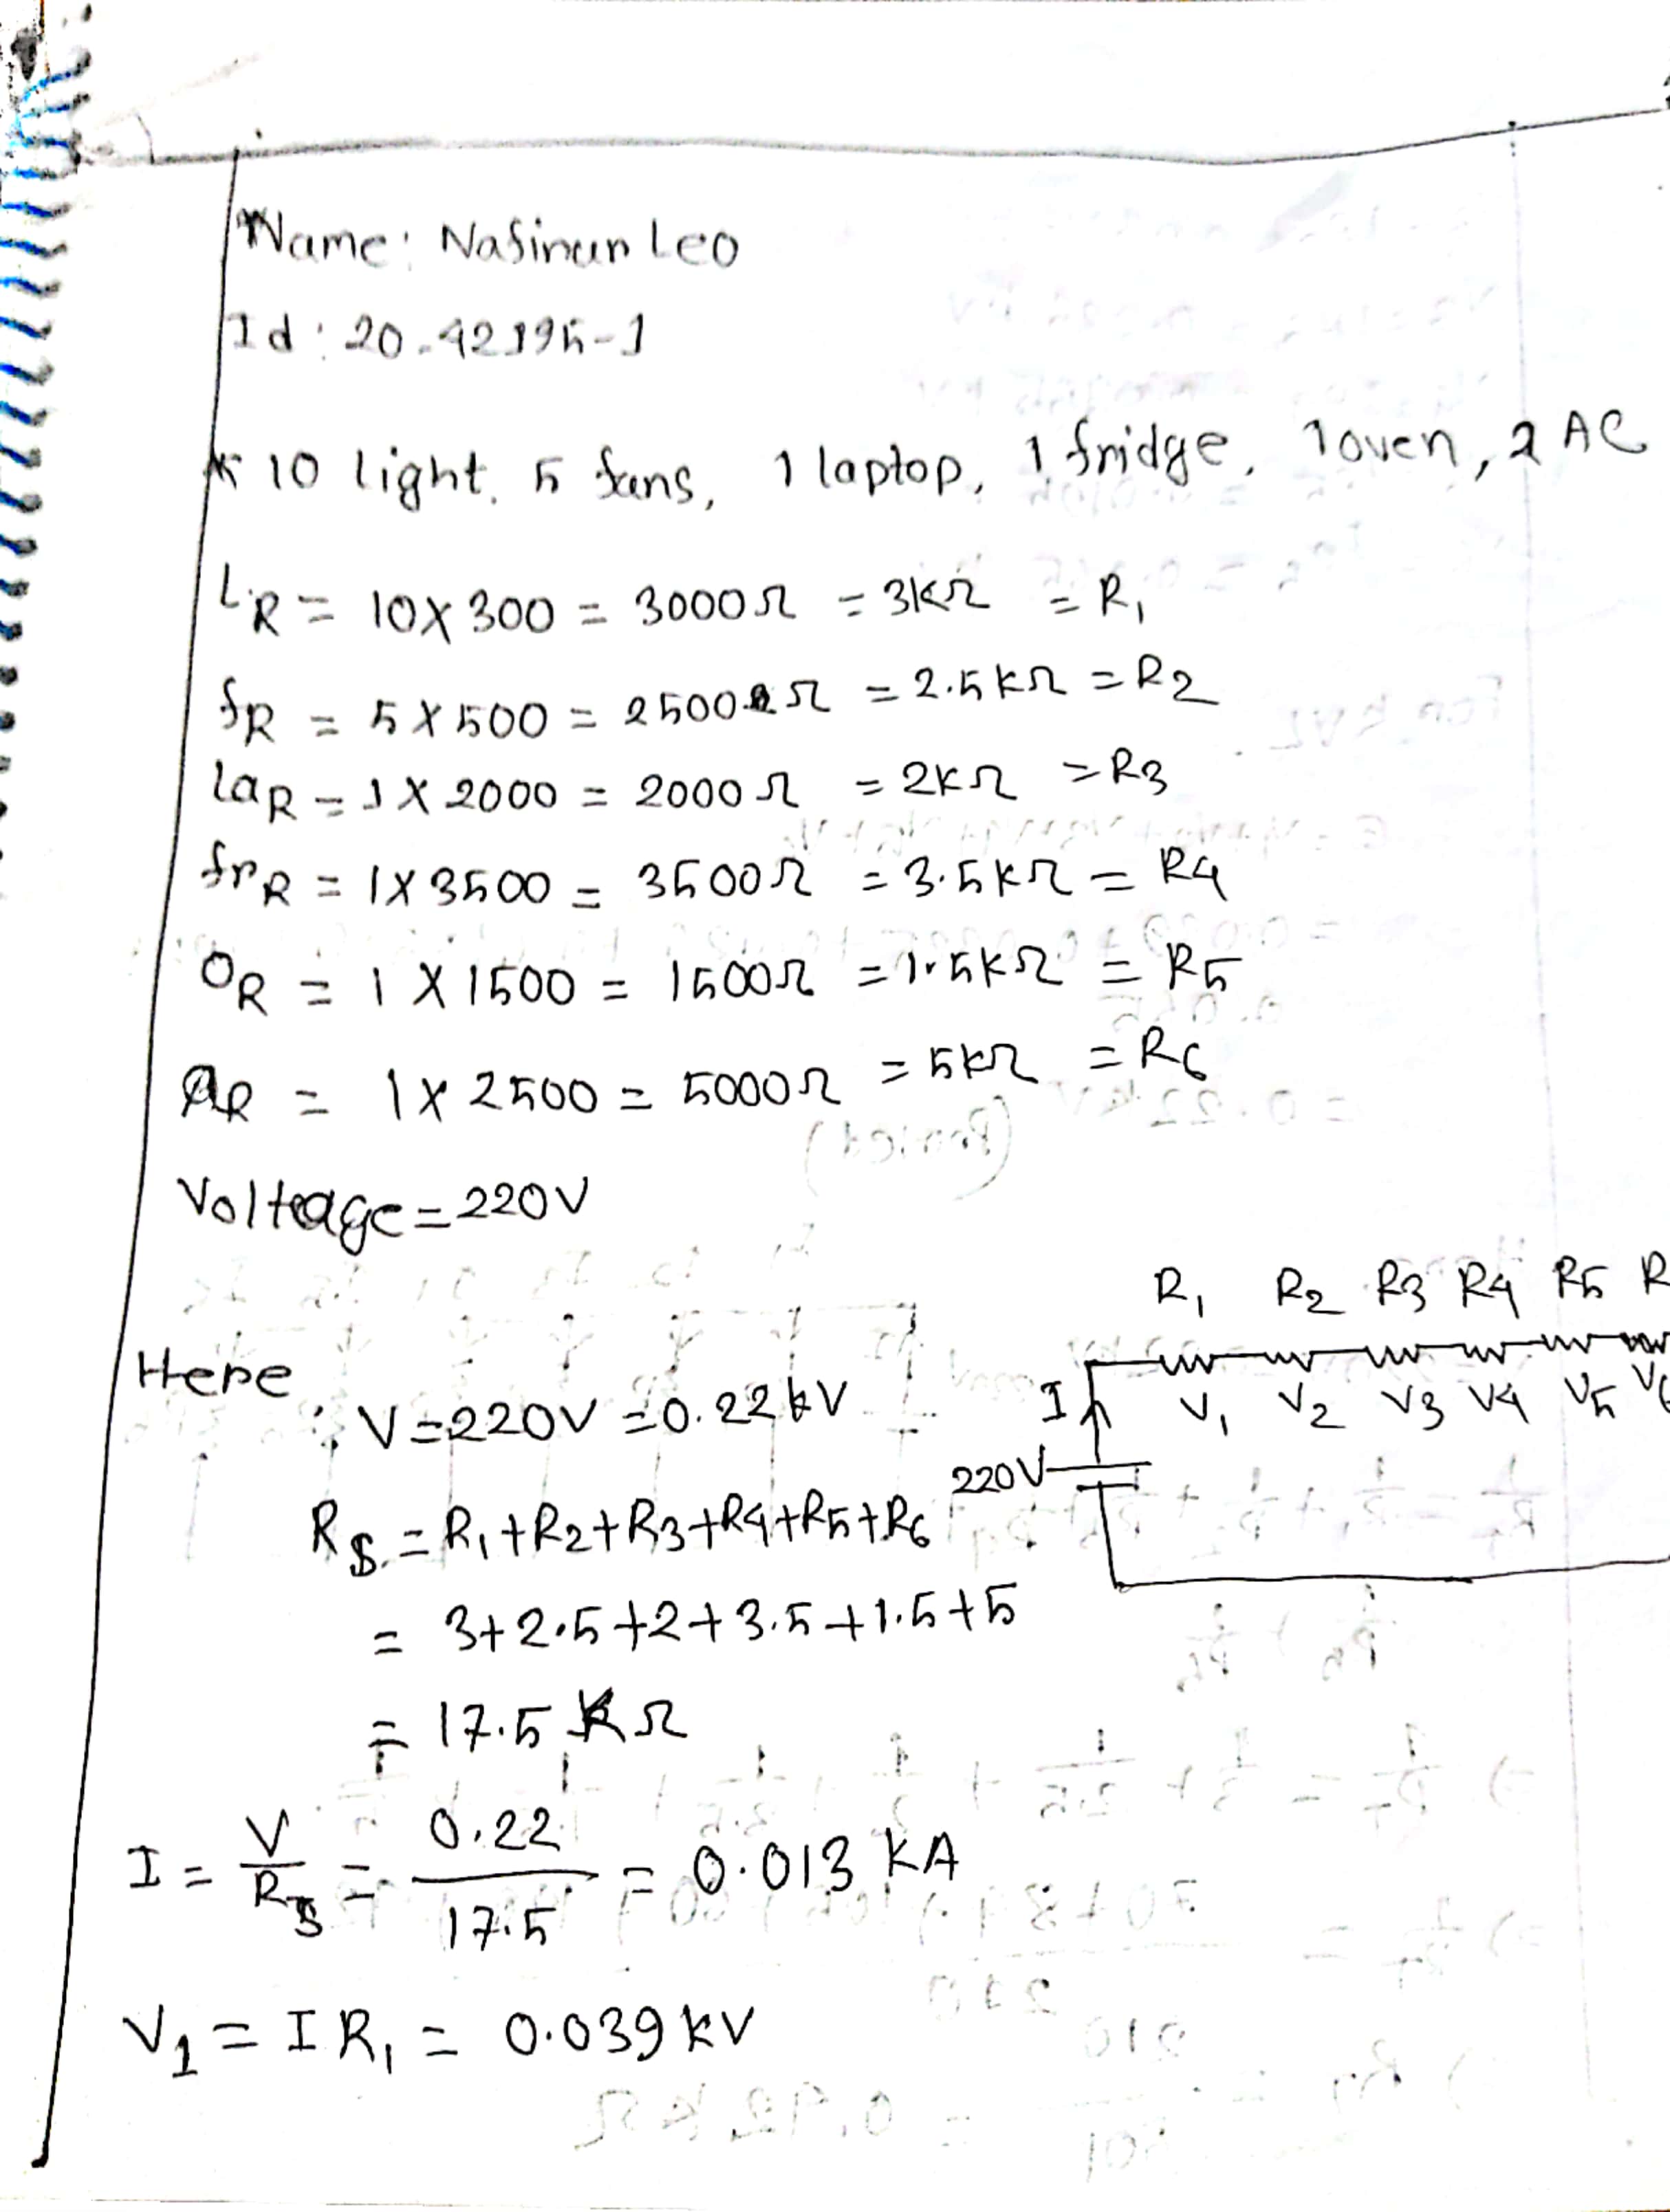 Name: Nafinun Leo
Id: 20-42195-1
* 10 light, 5 fans, 1 laptop, 1 fridge, 1 oven, 2 AC
L_R = 10 X 300 = 3000Ω = 3kΩ = R₁
f_R = 5 X 500 = 2500Ω = 2.5kΩ = R₂
la_R = 1 X 2000 = 2000Ω = 2kΩ = R₃
fr_R = 1 X 3500 = 3500Ω = 3.5kΩ = R₄
O_R = 1 X 1500 = 1500Ω = 1.5kΩ = R₅
a_R = 1 X 2500 = 5000Ω = 5kΩ = R₆
Voltage = 220V
R₁ R₂ R₃ R₄ R₅ R
Here, V = 220V = 0.22kV
I V₁ V₂ V₃ V₄ V₅ V₆
220V
R_S = R₁+R₂+R₃+R₄+R₅+R₆
= 3+2.5+2+3.5+1.5+5
= 17.5 KΩ
I = V/R_S = 0.22/17.5 = 0.013 kA
V₁ = I R₁ = 0.039 kV